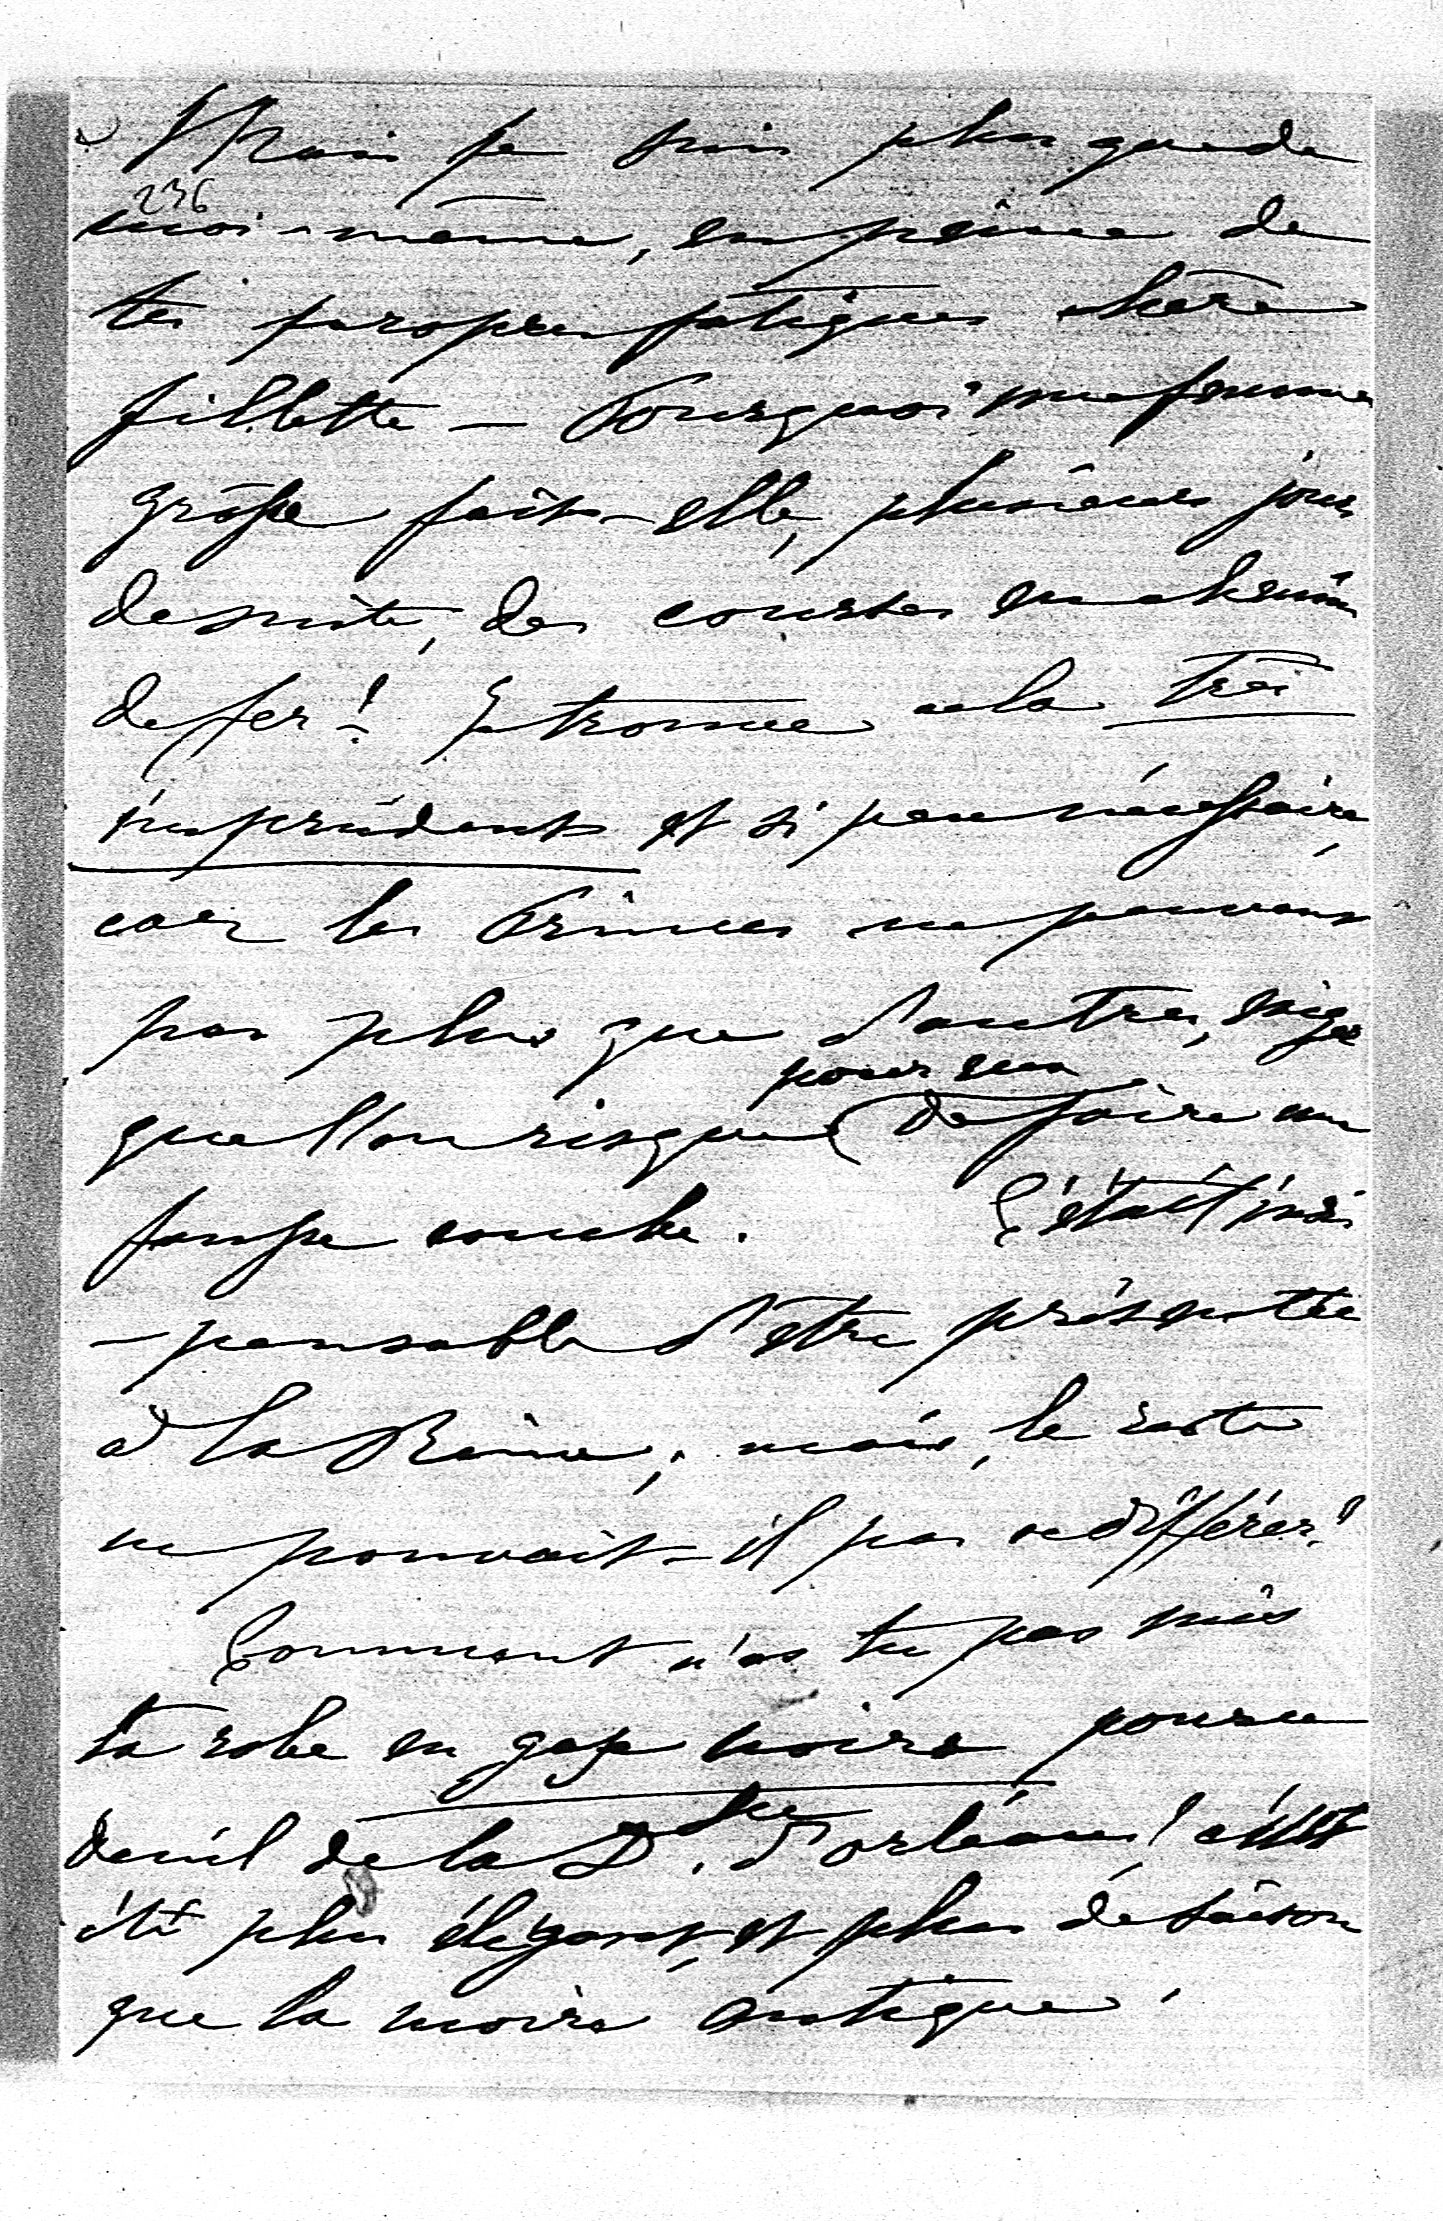 Mais je suis plus que de
236
moi-même, en peine de
tes propres fatigues chère
fillette — Pourquoi une femme
grosse fait-elle, plusieurs jours
de suite, des courses en chemin
de fer! Je trouve cela très
imprudent et si peu nécessaire,
car les Princes ne peuvent
pas plus que d'autres, exiger
pour eux
que l'on risque de faire une
fausse couche. C'était indis
-pensable d'être présentée
à la Reine; mais, le reste
ne pouvait-il pas se différer?
Comment n'as tu pas mis
ta robe en gaze noire pour ce
deuil de la D.sse d'orléans! c'eut
été plus élégant, et plus de saison
que la moire antique.